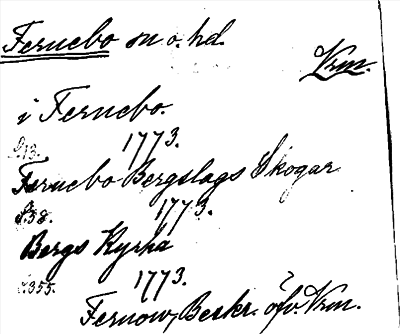 Fernebo sn o. hd.
Vrm.
i Fernebo.
S. 13. 1773.
Fernebo Bergslags Skogar
S. 38. 1773.
Bergs Kyrka
S. 355. 1773.
Fernow, Beskr. öfv. Vrm.